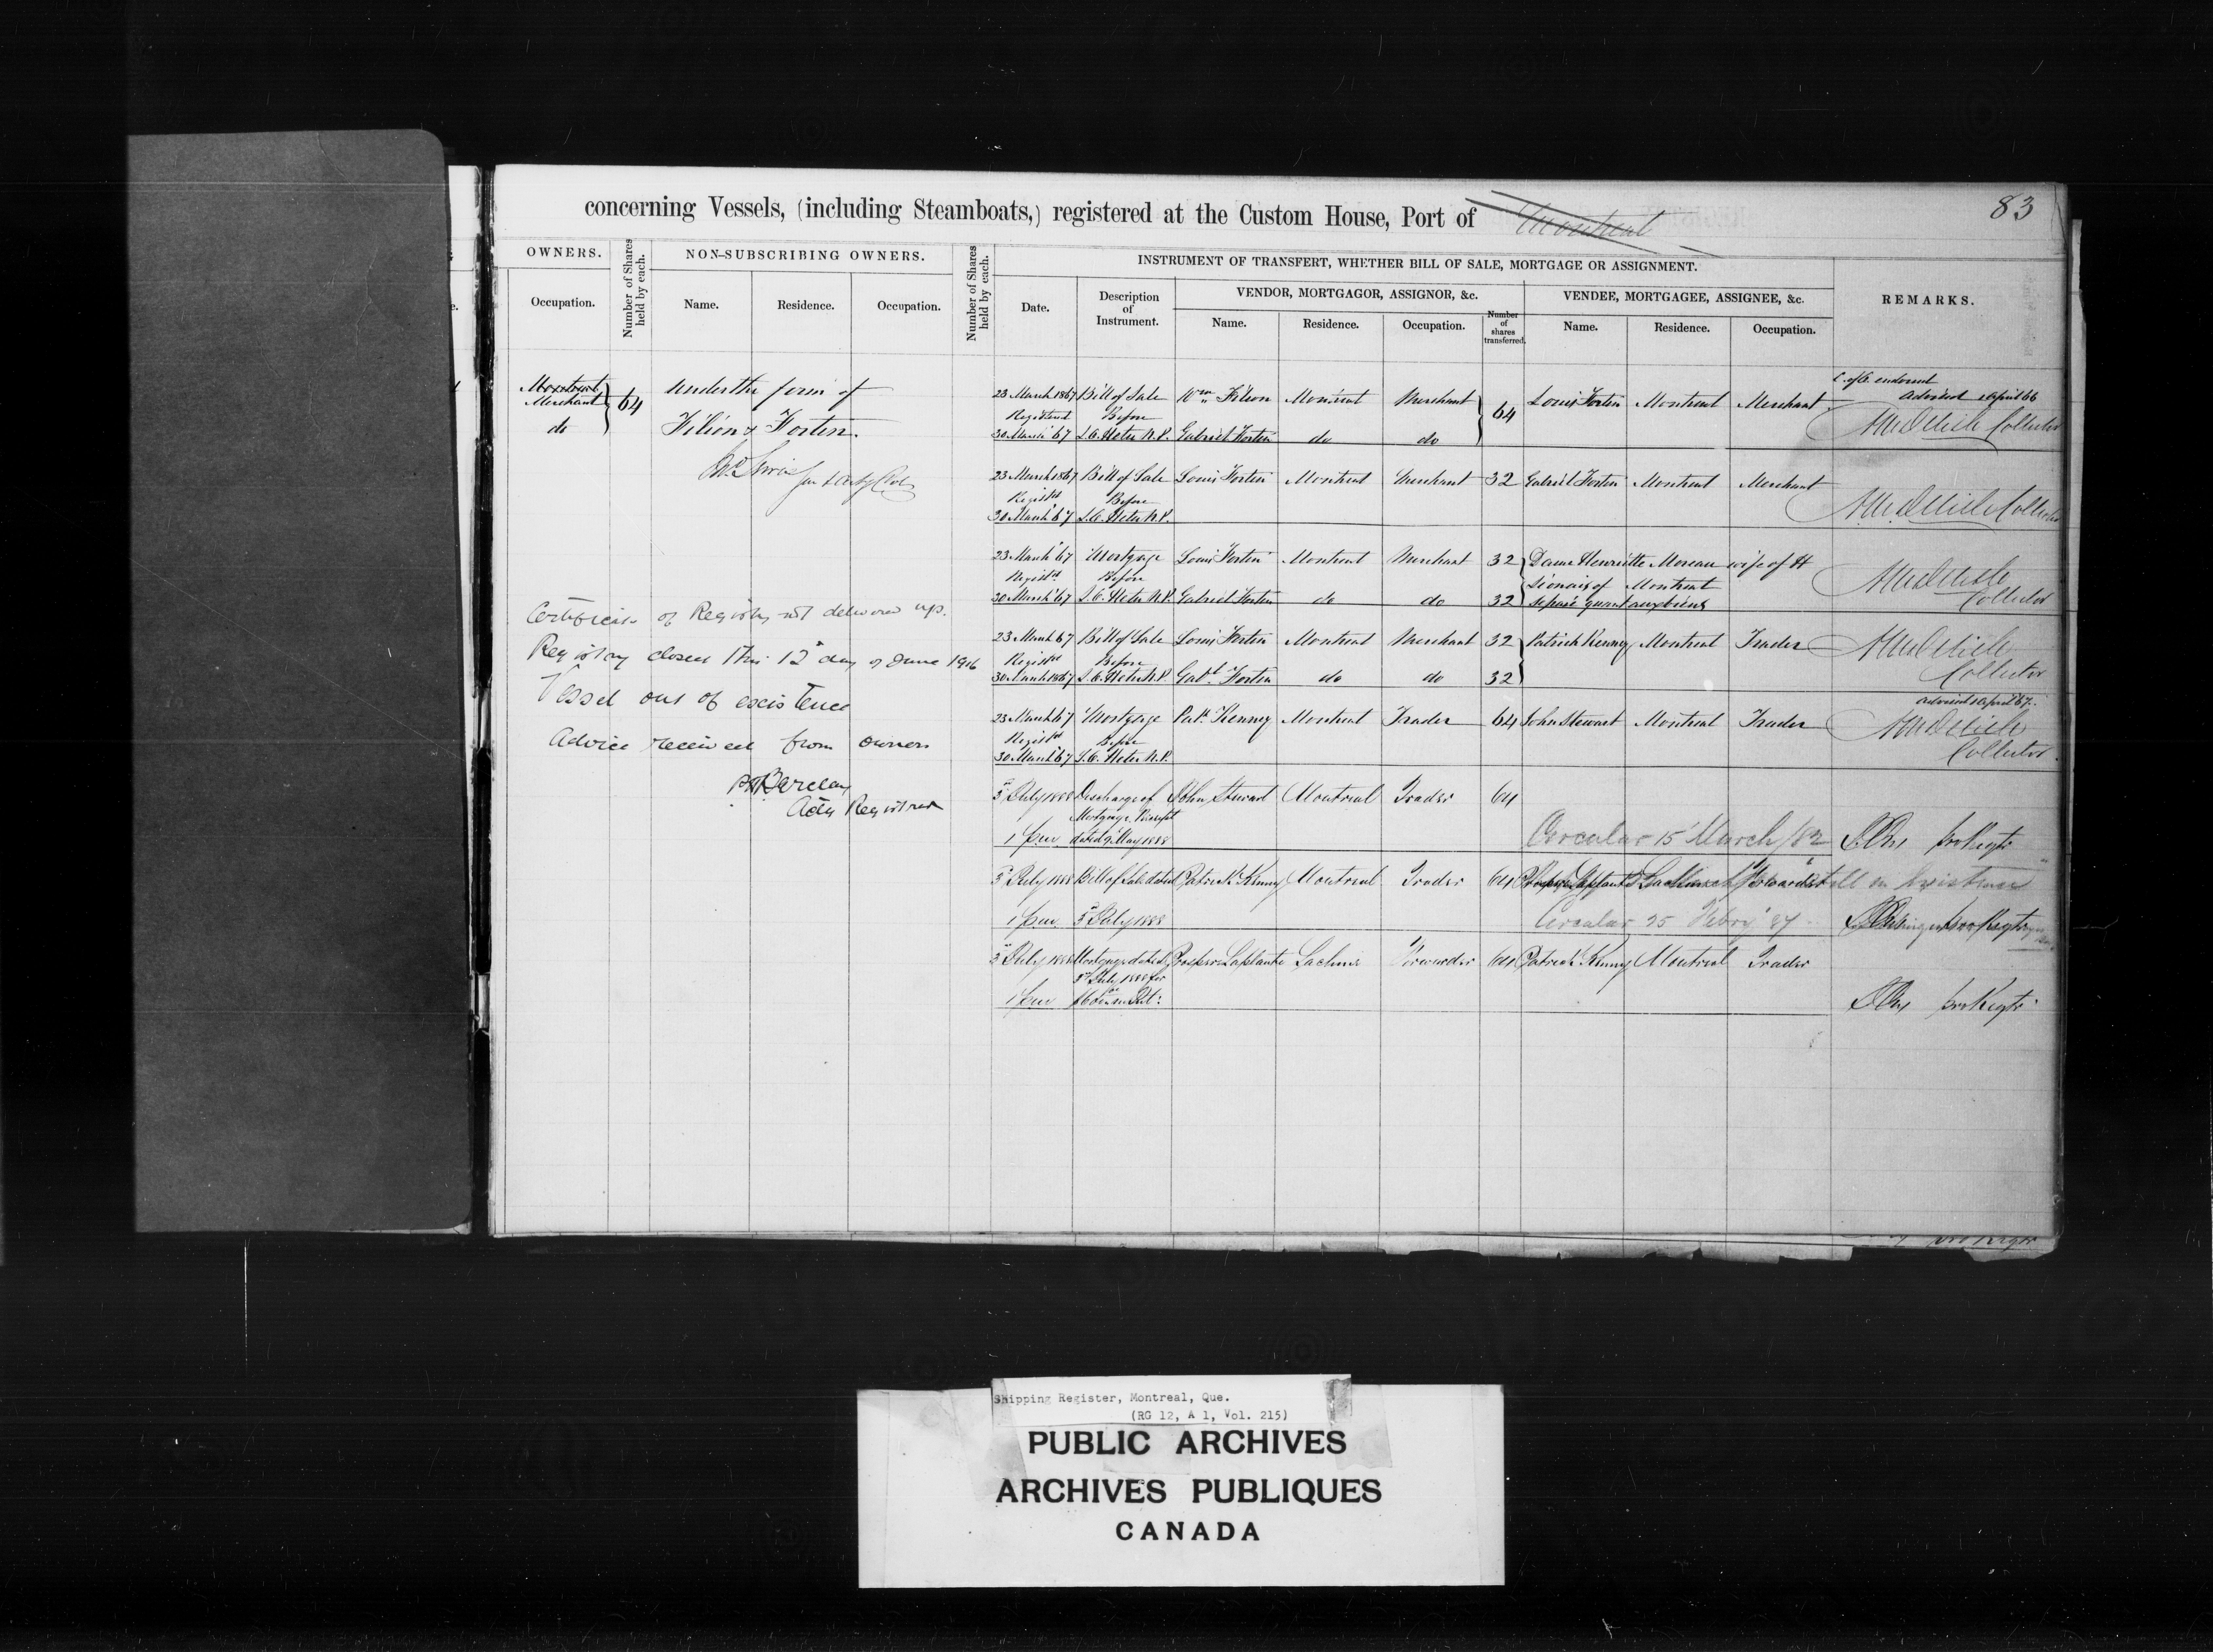 83
concerning Vessels, (including Steamboats,) registered at the Custom House, Port of Montreal
OWNERS.
Number of Shares held by each.
NON-SUBSCRIBING OWNERS.
Number of Shares held by each.
INSTRUMENT OF TRANSFERT, WHETHER BILL OF SALE, MORTGAGE OR ASSIGNMENT.
REMARKS.
Occupation.
Name.
Residence.
Occupation.
Date.
Description of Instrument.
VENDOR, MORTGAGOR, ASSIGNOR, &c.
Number of shares transferred.
VENDEE, MORTGAGEE, ASSIGNEE, &c.
Name.
Residence.
Occupation.
Name.
Residence.
Occupation.
Montreal
Merchant 64
do
under the firm of
Filion & Fortin.
Certificate of Registry not delivered up.
Registry closed this 12 day of June 1916
Vessel out of existence
Advice received from owners
Barclay
Actg Registrar
23 March 1867 Bill of Sale Wm Filion Montreal Merchant 64 Louis Fortin Montreal Merchant
C. of O. endorsed
Advised April 66
Registered Before
30 March 67 Gabriel Fortin do do
Collector
23 March 1867 Bill of Sale Louis Fortin Montreal Merchant 32 Gabriel Fortin Montreal Merchant
Registd Before
30 March 67
Collector
23 March 67 Mortgage Louis Fortin Montreal Merchant 32 Dame Henriette Moreau wife of H
Registd Before
of Montreal
30 March 67 Gabriel Fortin do do 32 séparé quant aux biens
Collector
23 March 67 Bill of Sale Louis Fortin Montreal Merchant 32 Patrick Kenny Montreal Trader
Registd Before
30 March 1867 Gabl Fortin do do 32
Collector
advised April 67.
23 March 67 Mortgage Patk Kenney Montreal Trader 64 John Stewart Montreal Trader
Registd Before
30 March 67
Collector
5 July 1888 Discharge of John Stewart Montreal Trader 64
Mortgage Receipt
1 p.m. dated May 1888
Circular 15 March/82
5 July 1888 Bill of Sale dated Patrick Kenny Montreal Trader 64 Prosper Laplante Lachine Forwarder
1 p.m. 5 July 1888
Circular 25 Febry 87
5 July 1888 Mortgage dated Prosper Laplante Lachine Forwarder 64 Patrick Kenny Montreal Trader
5 July 1888 for
1 p.m.
Shipping Register, Montreal, Que.
(RG 12, A 1, Vol. 215)
PUBLIC ARCHIVES
ARCHIVES PUBLIQUES
CANADA